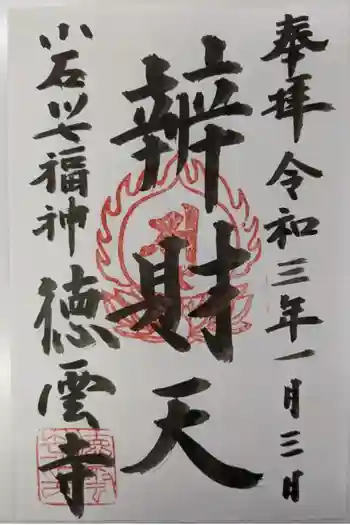 奉拝 令和三年一月三日
辨財天
小石川七福神
徳雲寺